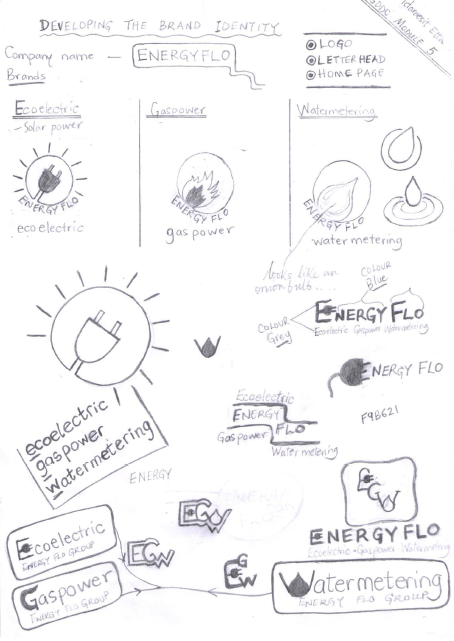 DEVELOPING THE BRAND IDENTITY
MODULE 5
Company name — ENERGY FLO
LOGO
LETTER HEAD
HOME PAGE
Brands
Ecoelectric
- Solar power
ENERGY FLO
eco electric
Gaspower
ENERGY FLO
gas power
Watermetering
ENERGY FLO
water metering
looks like an
onion bulb....
COLOUR
Blue
COLOUR
Grey
ENERGY FLO
Ecoelectric Gaspower Watermetering
ENERGY FLO
F9B621
ecoelectric
gaspower
watermetering
Ecoelectric
ENERGY
FLO
Gaspower
Water metering
ENERGY
EGW
EGW
EGW
EGW
ENERGY FLO
Ecoelectric - Gaspower Watermetering
Ecoelectric
ENERGY FLO GROUP
Gaspower
ENERGY FLO GROUP
Watermetering
ENERGY FLO GROUP